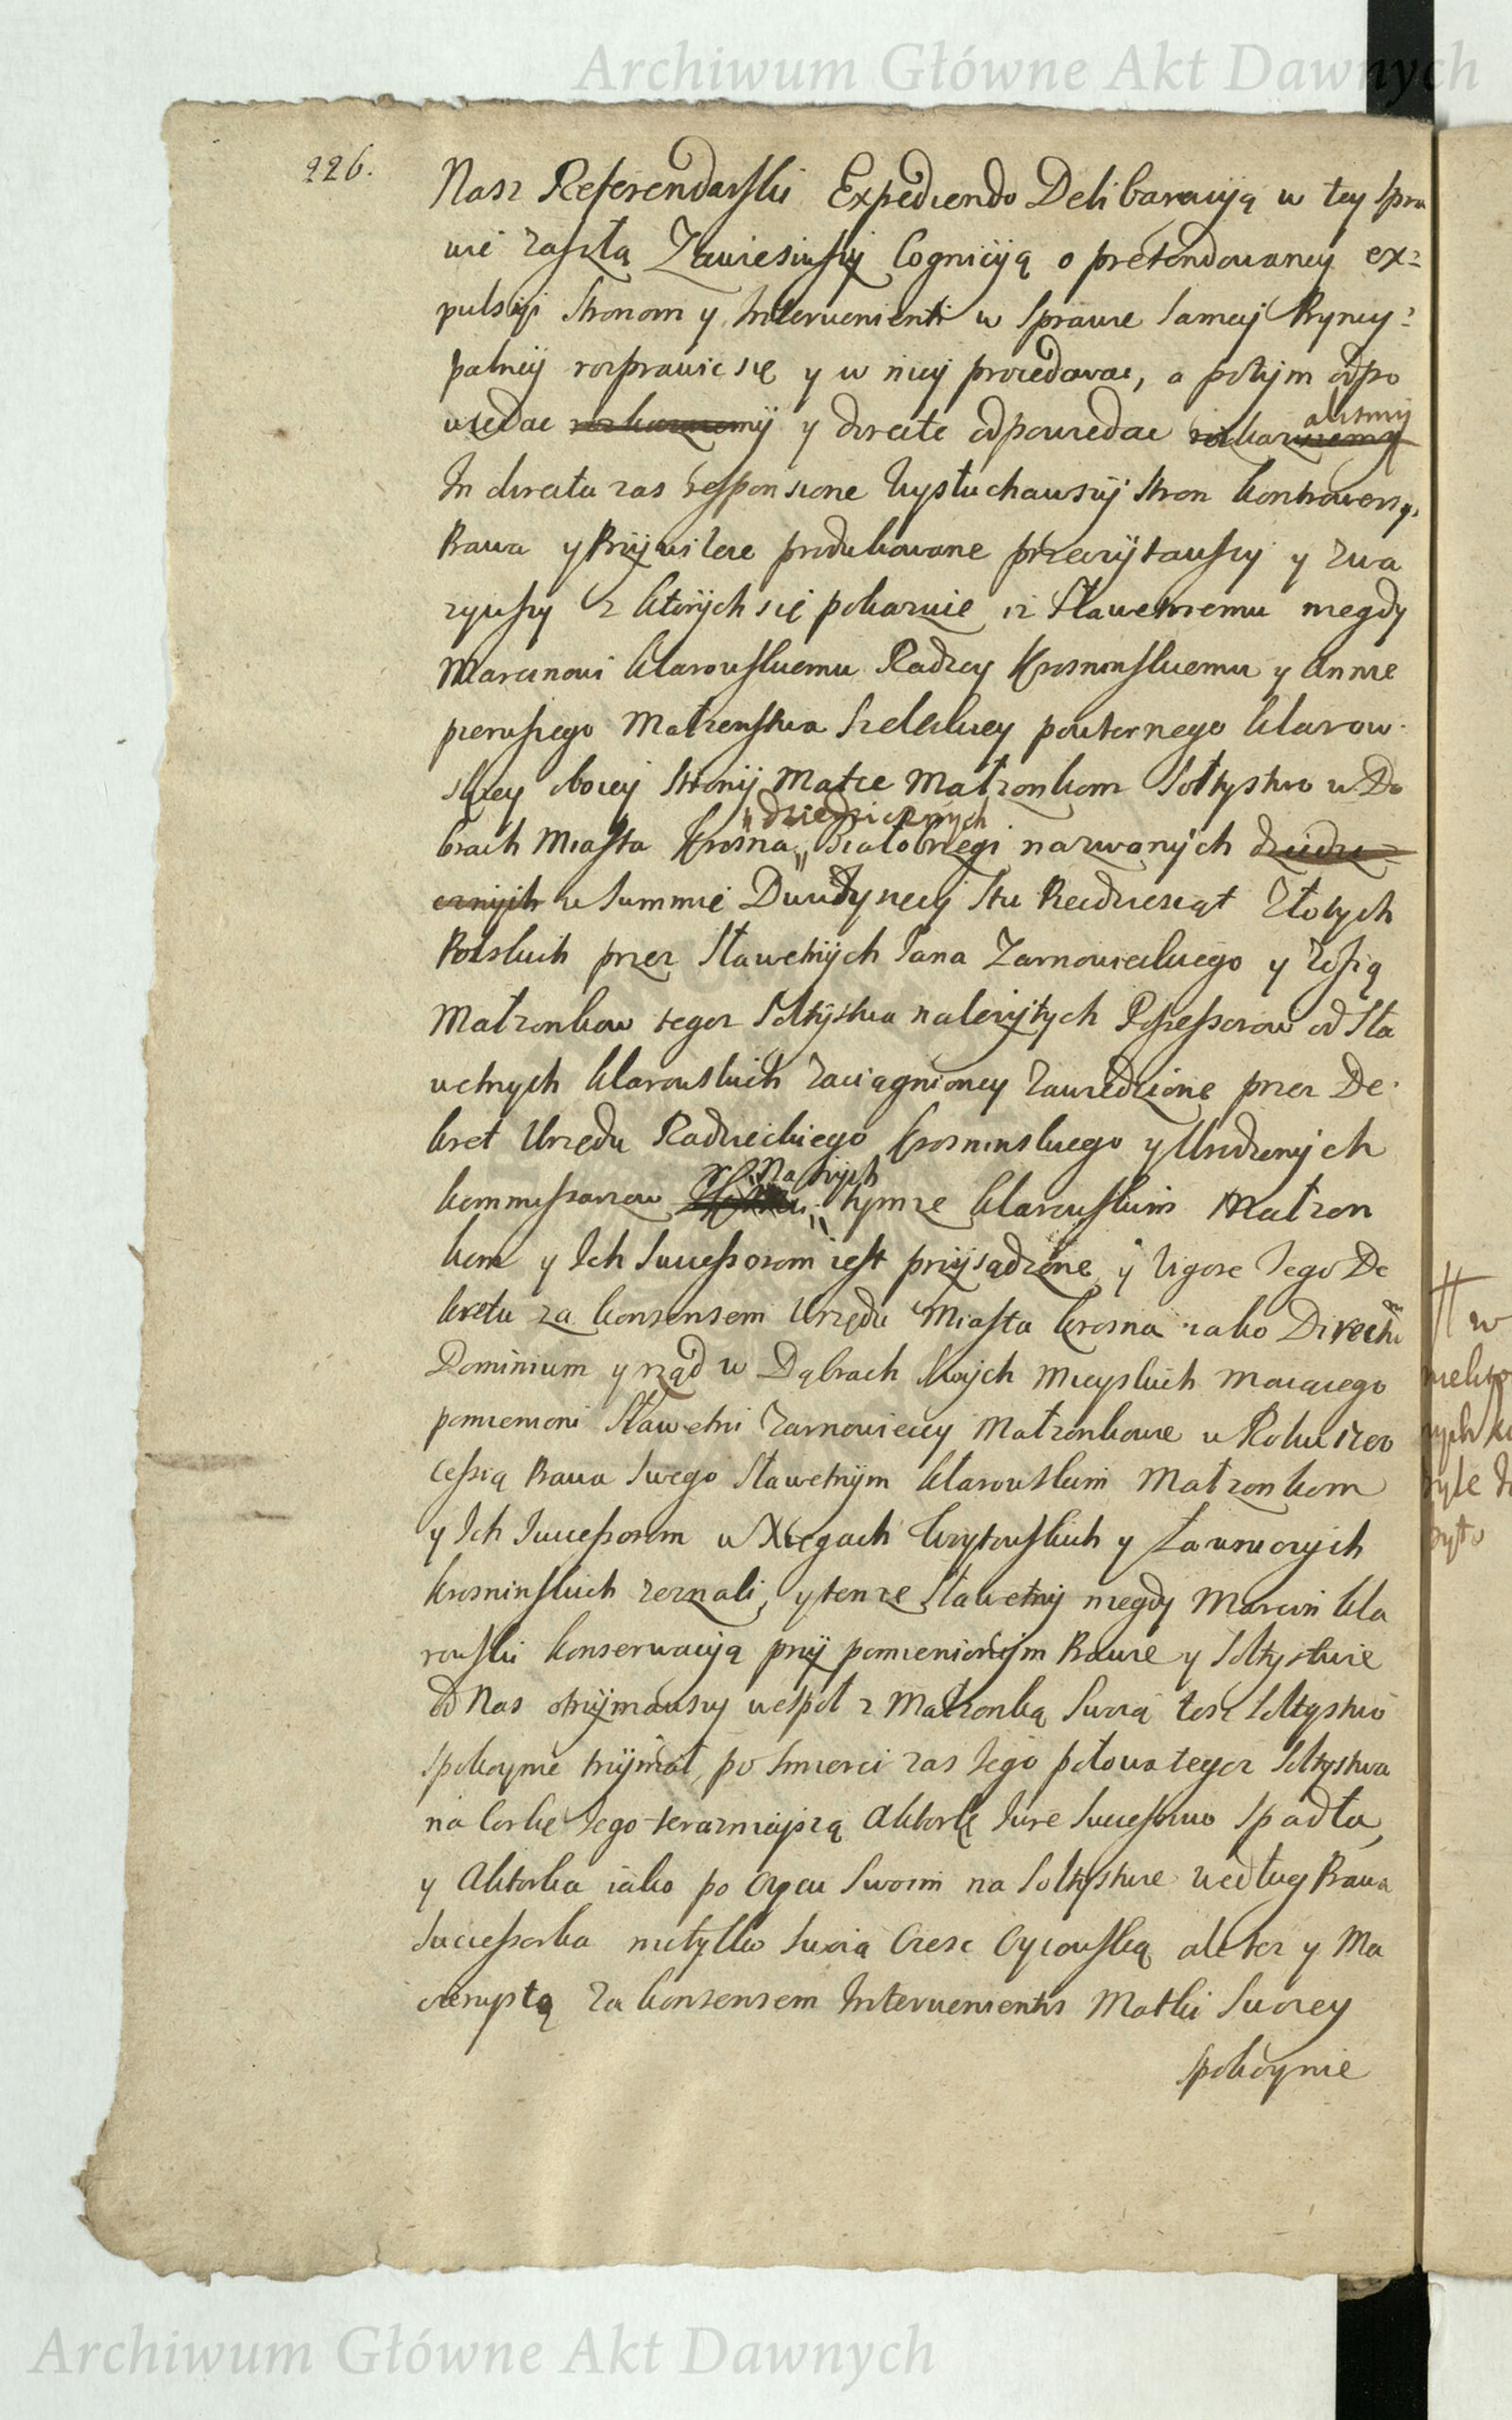 Archiwum Główne Akt Dawnych
226.
Nasz Referendarski Expediendo Deliberacyią w tey spra
wie zaszłą Zawiesiwszy Cognicyią o pretendowaney ex=
pulsiji Stronom y Intervenienti w Sprawie Samey Pryncy=
palney rozprawic się y w niey procedowac, a potym odpo
wiedac rozkazuiemy y directe odpowiedac rozkazuiemy
alismy
In directa zas responsione Wysłuchawszy Stron kontrowersyi
Prawa y Przywileie produkowane przeczytawszy y zwa
zywszy z ktorych się pokazuie iz Sławetnemu niegdy
Marcinowi Klarowskiemu Radzcy Krosninskiemu y Annie
pierwszego Małzenstwa powtornego Klarow
skiey oboiey Strony Matce Małzonkom Sołtystwo w Do
brach Miasta Krosna Białobrzegi nazwanych dziedzi=
"dziedzicznych
cznych w Summie Dwutysięcy Stu Pięcdziesiąt Złotych
Polskich przez Sławetnych Jana Zarnowieckiego y Zofią
Małzonkow tegoz Sołtystwa nalezytych Possessorow od Sła
wetnych Klarowskich zaciągnioney zawiedzione przez De
kret Urzędu Radzieckiego Krosninskiego y Urodzonych
Kommissarzow tymze Klarowskim Małzon
Naszych
kom y Ich Successorom iest przysądzone y Vigore Tego De
kretu za konsensem Urzędu Miasta Krosna iako Directum
Dominium y rząd w Dobrach Swych Mieyskich maiącego
pomienieni Sławetni Zarnowieccy Małzonkowie w Roku
cessią Prawa Swego Sławetnym Klarowskim Małzonkom
y Ich Successorom w Xięgach Woytowskich y Ławniczych
Krosninskich zeznali, y tenze Sławetny niegdy Marcin Kla
rowski konserwacyią przy pomienionym Prawie y Sołtystwie
od Nas otrzymawszy wespoł z Małzonką Swoią toz Sołtystwo
spokoynie trzymał, po Smierci zas Jego połowa tegoz Sołtystwa
na Corkę Jego terazniejszą Aktorkę Jure Successivo spadła,
y Aktorka iako po Oycu Swoim na Sołtystwie według Prawa
Successorka nietylko Swoią Częsc Oycowską ale tez y Ma
cierzystą za konsensem Intervenientis Matki Swoiey
spokoynie
# w
Archiwum Główne Akt Dawnych